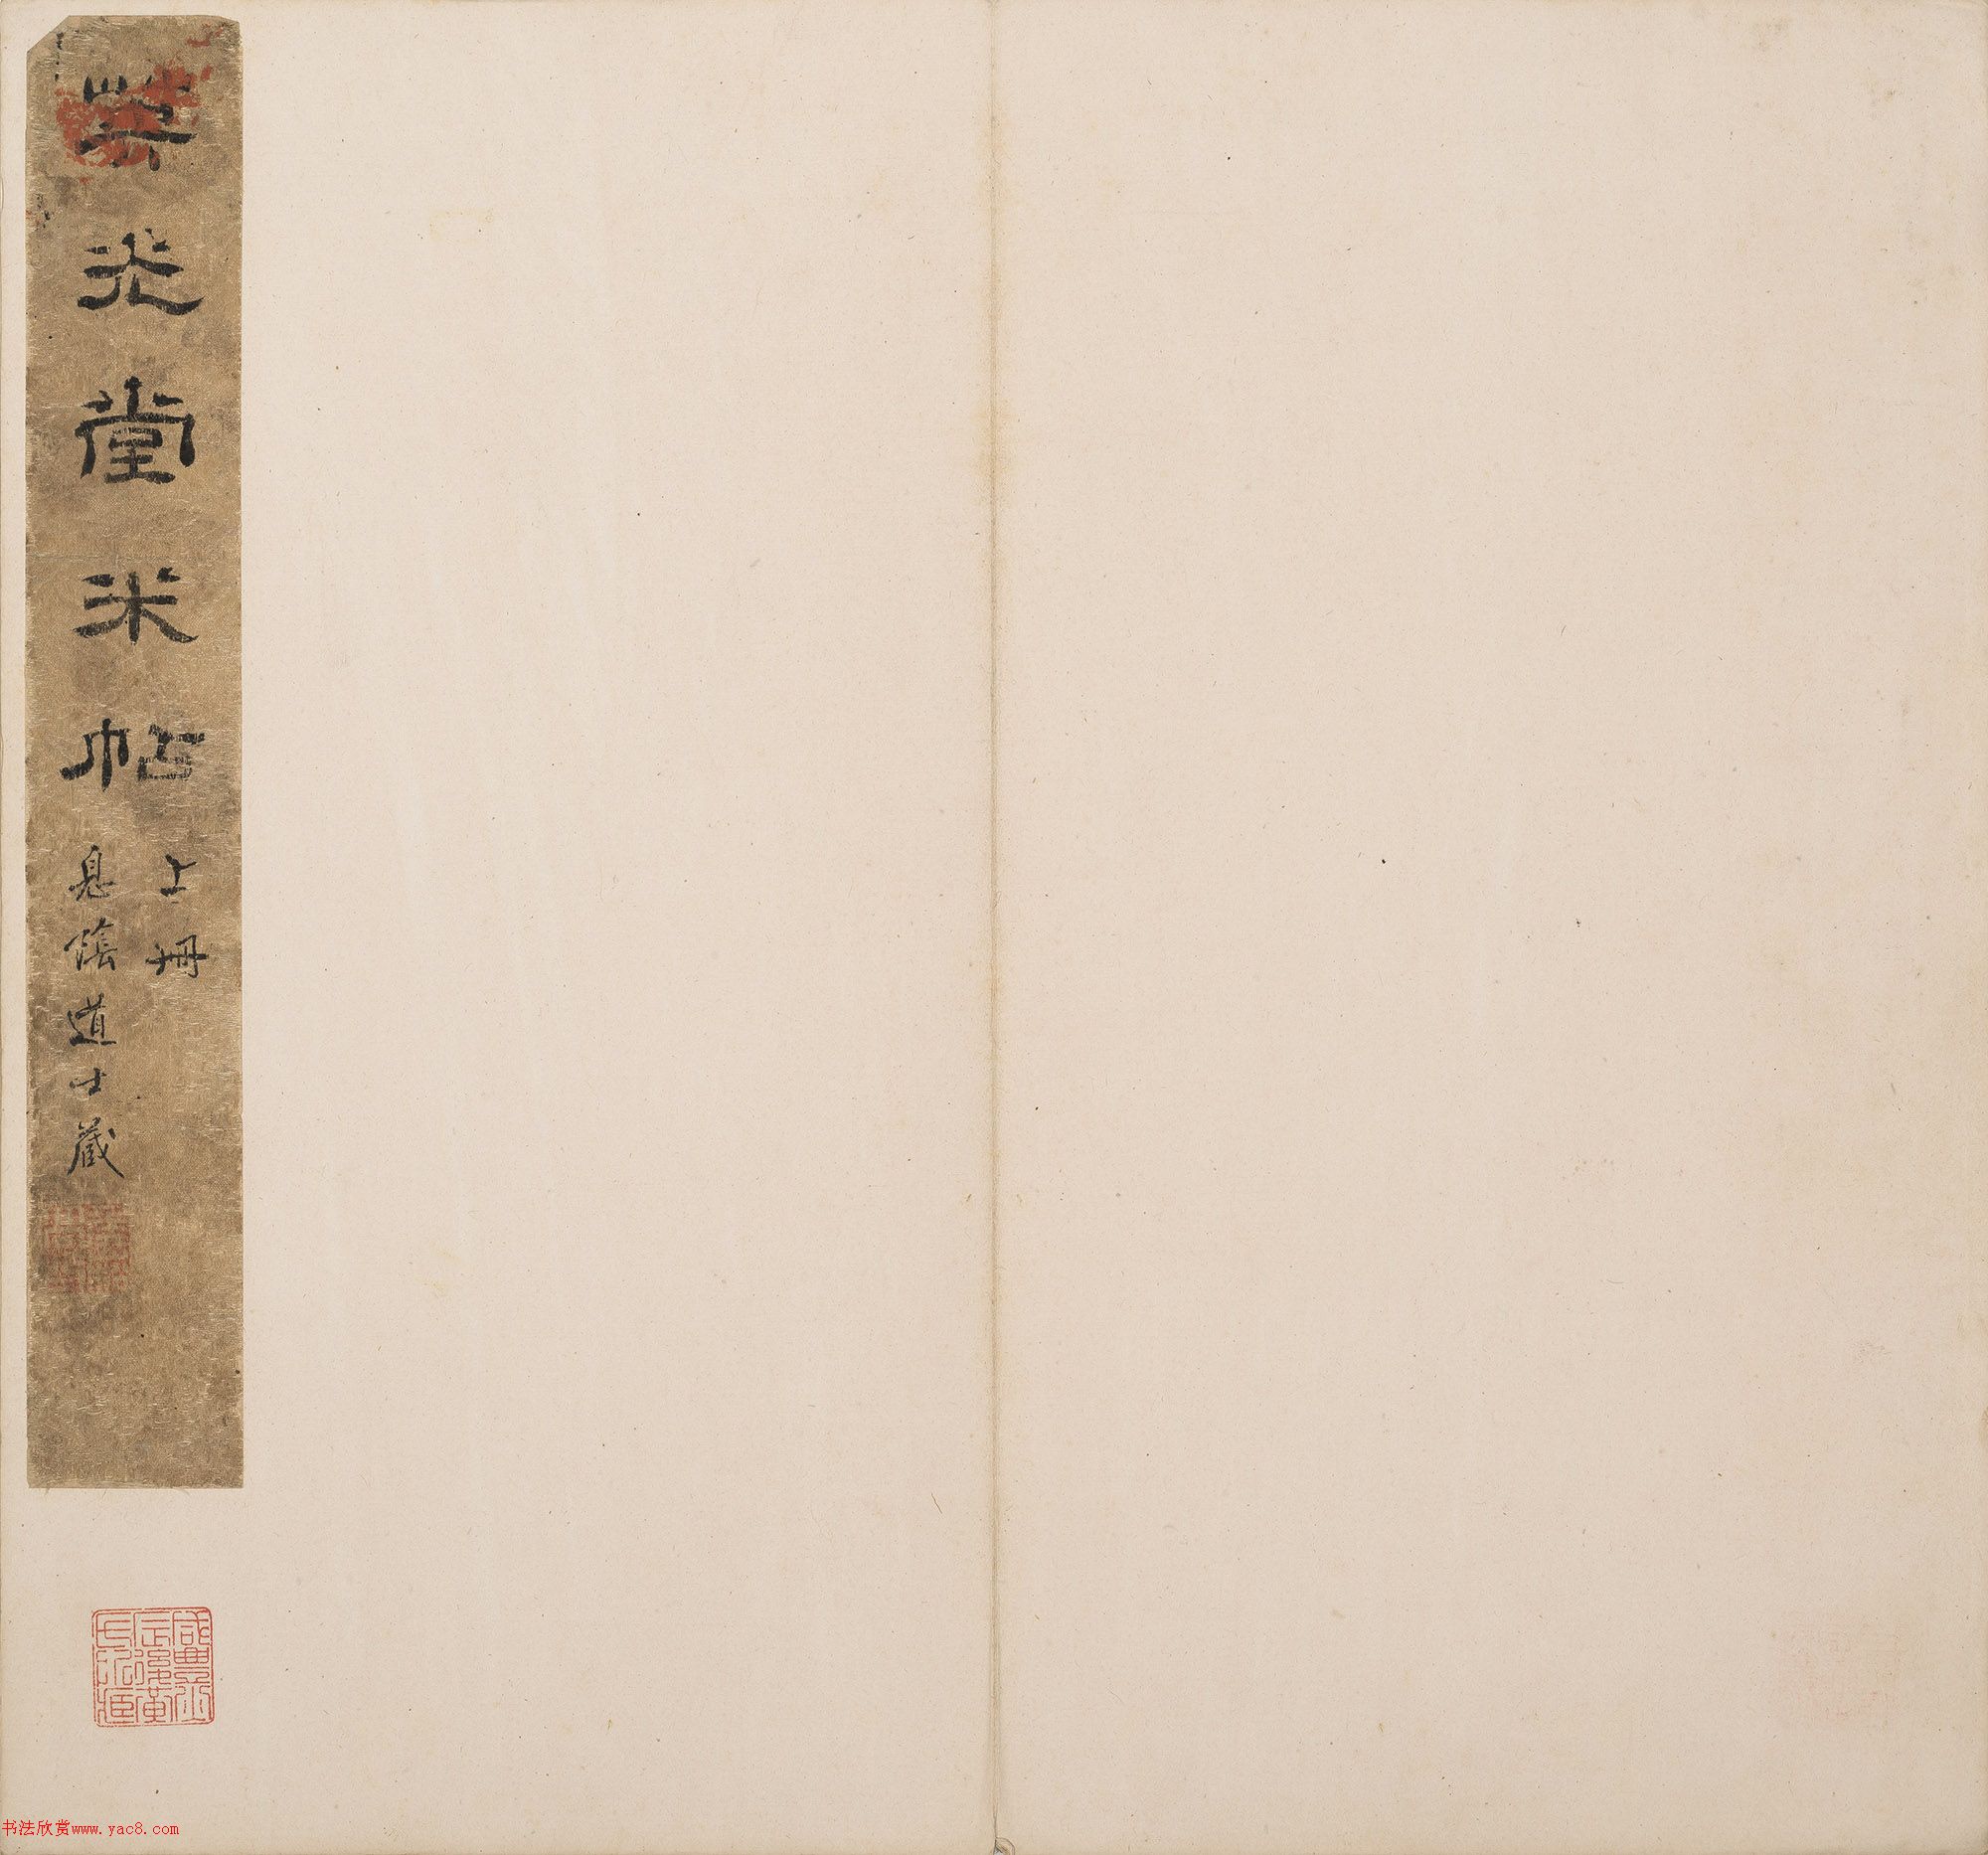 英光堂米帖
上冊
息陰道士藏
书法欣赏www.yac8.com